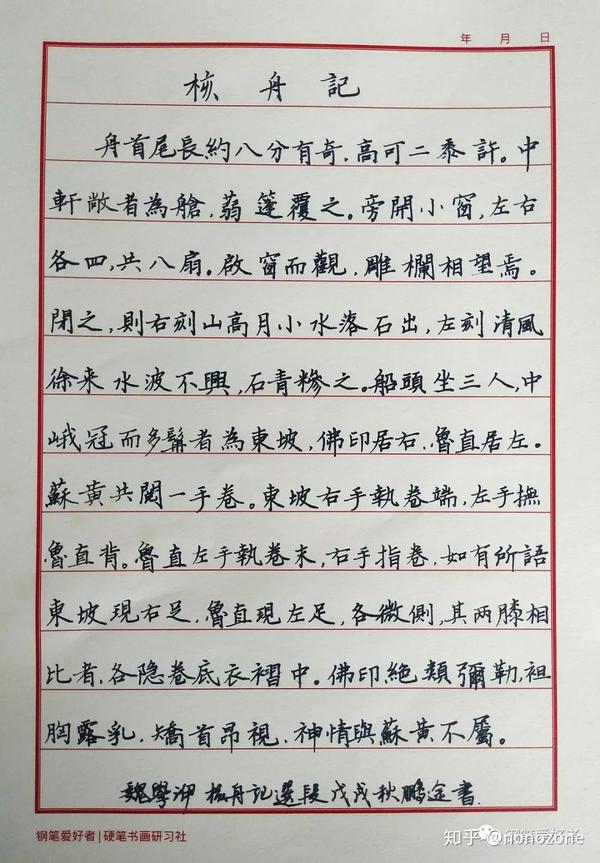 年 月 日
核舟記
舟首尾長約八分有奇,高可二黍許。中
軒敞者為艙,蒻篷覆之。旁開小窗,左右
各四,共八扇。啟窗而觀,雕欄相望焉。
閉之,則右刻山高月小水落石出,左刻清風
徐来水波不興,石青糝之。船頭坐三人,中
峨冠而多髯者為東坡,佛印居右,魯直居左。
蘇黃共閱一手卷。東坡右手執卷端,左手撫
魯直背。魯直左手執卷末,右手指卷,如有所語
東坡現右足,魯直現左足,各微側,其两膝相
比者,各隐卷底衣褶中。佛印絕類彌勒,袒
胸露乳,矯首昂視,神情與蘇黃不屬。
魏學洢 核舟記選段 戊戌秋鹏 書
钢笔爱好者|硬笔书画研习社
知乎 @nonozone
钢笔爱好者